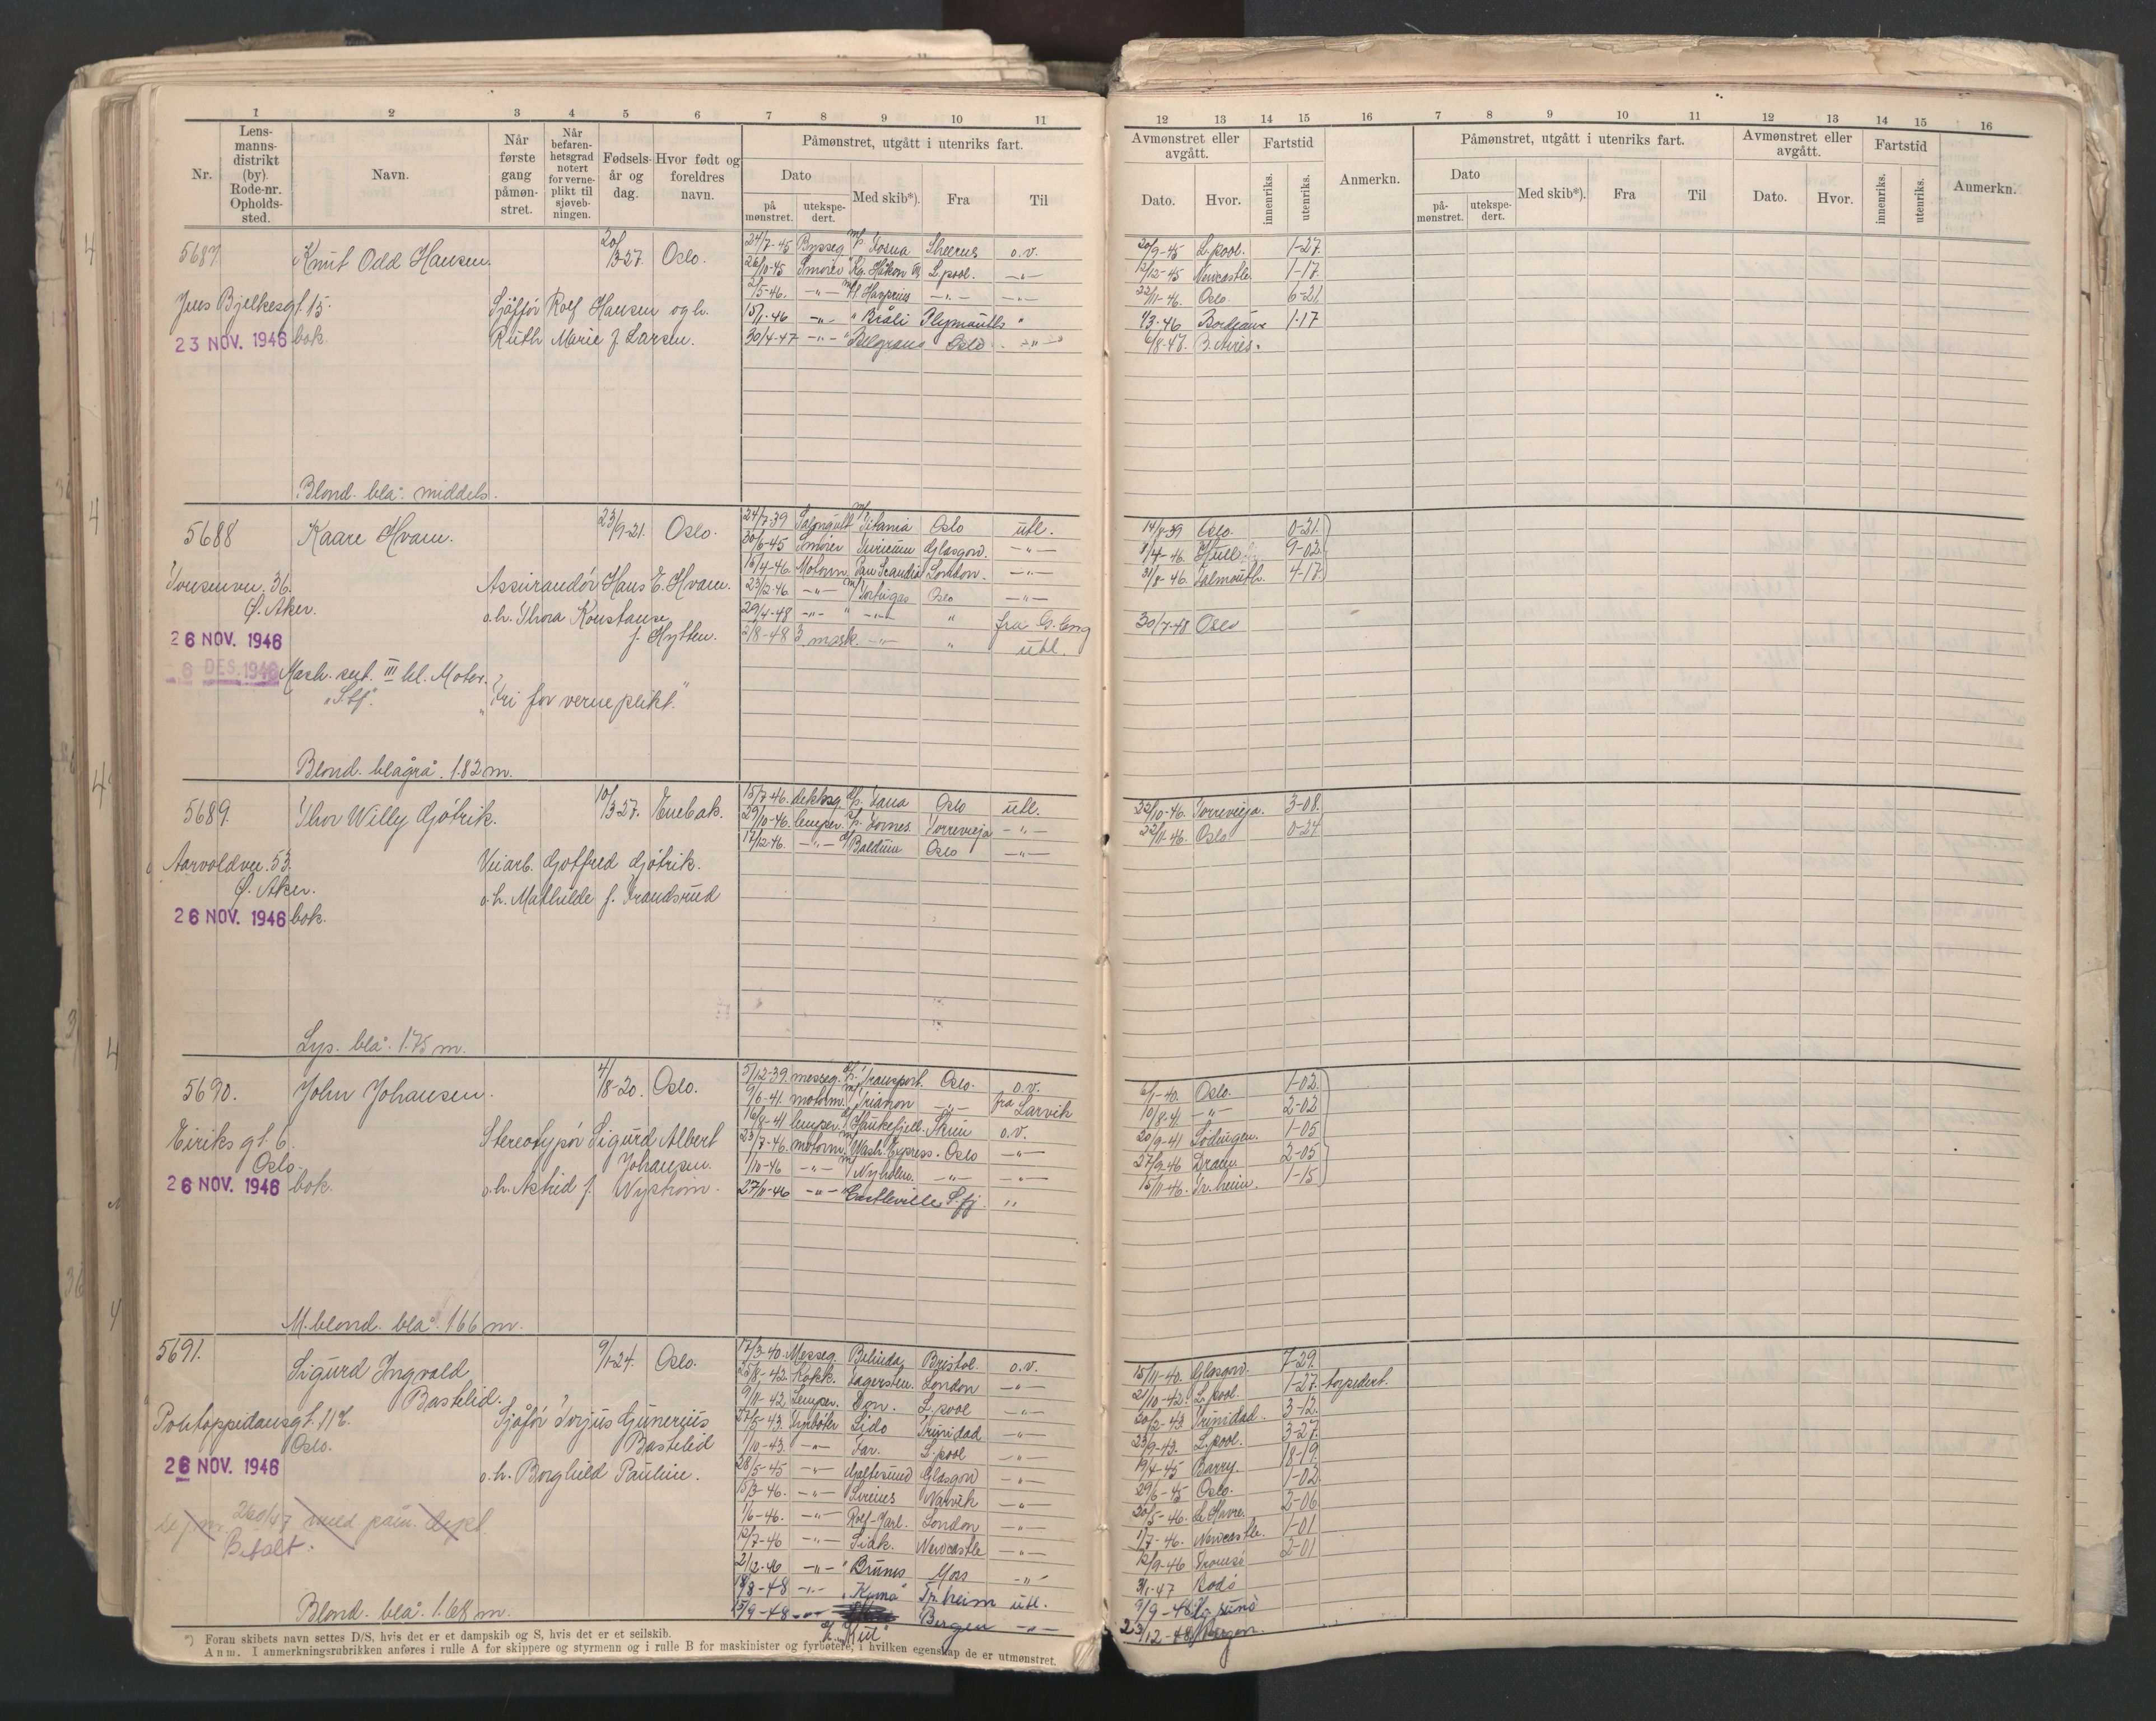 1 2 3 4 5 6 7 8 9 10 11
Nr. Lensmannsdistrikt (by). Rode-nr. Opholdssted. Navn. Når første gang påmønstret. Når befarenhetsgrad notert for verneplikt til sjøvebningen. Fødselsår og dag. Hvor født og foreldres navn. Påmønstret, utgått i utenriks fart.
Dato Med skib*). Fra Til
påmønstret. utekspedert.
5687 Knut Odd Hansen. 20/3-27. Oslo. 24/7-45 Bysseg m/s Tosna Sheerns o.v.
26/10-45 Smører Kg. Håkon VII L.pool. -"-
Jens Bjelkesgt. 15. Sjåffør Rolf Hansen og h. 2/5-46. -"- -"- -"-
23 NOV. 1946 bok Ruth Marie f. Larsen. 15/1-46 -"- " Bråli Plymouth "
30/4-47 -"- " Belgrano Oslo -"-
Blond. blå. middels.
5688 Kaare Hvam. 23/9-21. Oslo. 24/7-39 m/s Titania Oslo utl.
30/6-45 Smører Turicum Glasgow. -"-
15/4-46. Motorm. Pan Scandia London. -"-
Tonsenvn. 36. Assurandør Hans E. Hvam. 23/12-46 -"- m/s Tortugas Oslo -"-
Ø. Aker. o.h. Thora Konstanse 29/4-48 -"- " -"- " fra G. Eng
26 NOV. 1946 f. Hytten. 2/8-48 3 mask. -"- " utl.
6 DES. 1946 Mask. sert. III kl. Motor.
"Stf." "Fri for verneplikt."
Blond. blågrå. 1.82 m.
5689. Thor Willy Gjötrik. 10/3-27. Enebak. 15/7-46. dekksg. d/s. Tana Oslo utl.
29/10-46. lemper. d/s. Tornes. Torrevieja -"-
17/12-46. -"- d/s Balduin Oslo -"-
Aarvoldvn. 53. Veiarb. Gotfred Gjötrik.
Ø. Aker. o.h. Mathilde f. Trandsrud
26 NOV. 1946 bok.
Lys. blå. 1.75 m.
5690. John Johansen. 4/8-20. Oslo. 5/12-39. messeg. d/s. Transport. Oslo. o.v.
9/6-41. motorm. m/s Trianon -"- fra Larvik
16/8-41 lemper. d/s Haukefjell. Thm o.v.
Eiriksgt. 6. Stereotypør Sigurd Albert 23/7-46. motorm. m/s Wash. Express. Oslo -"-
Oslo. Johansen. 1/10-46 -"- m/s Nyholm. -"- -"-
26 NOV. 1946 bok. o.h. Astrid f. Nystrøm. 27/11-46 -"- " Castleville S.fj. "
M. blond. blå. 166 m.
5691. Sigurd Ingvald 9/1-24. Oslo. 17/3-40. Messeg. Belinda Bristol. o.v.
Bastelid. 25/8-42. Kokk. Lagersten. London -"-
9/11-42 Lemper. Don. L.pool -"-
Pontoppidansgt. 11b. Sjåfør Torjus Gunerius 27/5-43. Fyrbøter Lido Trinidad -"-
Oslo. Bastelid 1/10-43. -"- Far. L.pool -"-
26 NOV. 1946 o.h. Borghild Pauline. 28/5-45 -"- Galtesund Glasgow -"-
15/3-46. -"- Sirius Narvik -"-
1/6-46. -"- Rolf-Jarl. London -"-
12/7-46 -"- Newcastle -"-
Betalt. 2/12-46 -"- " Brunes Moss -"-
18/8-48 -"- "Kuma" Tr.heim utl.
Blond. blå. 1.68 m. 15/9-48 -"- Bergen -"-
*) Foran skibets navn settes D/S, hvis det er et dampskib og S, hvis det er et seilskib.
Anm. I anmerkningsrubrikken anføres i rulle A for skippere og styrmenn og i rulle B for maskinister og fyrbøtere, i hvilken egenskap de er utmønstret.
12 13 14 15 16 7 8 9 10 11 12 13 14 15 16
Avmønstret eller avgått. Fartstid Anmerkn. Påmønstret, utgått i utenriks fart. Avmønstret eller avgått. Fartstid Anmerkn.
Dato. Hvor. innenriks. utenriks. Dato påmønstret. utekspedert. Med skib*). Fra Til Dato. Hvor. innenriks. utenriks.
20/9-45 L.pool. 1-27.
12/12-45 Newcastle 1-17.
22/11-46. Oslo. 6-21.
1/3-46 Bordeaux 1-17
6/8-47. B. Aires.
14/8-39 Oslo. 0-21.
1/4-46. Hull. 9-02.
31/8-46. Falmouth. 4-17.
30/7-48 Oslo
22/10-46. Torrevieja. 3-08.
22/11-46. Oslo 0-24
6/1-40. Oslo. 1-02.
10/8-41 -"- 2-02
20/9-41 Lødingen. 1-05
27/9-46 Dram. 2-05
15/11-46. Tr.heim. 1-15
15/11-40. Glasgow. 7-29.
21/10-42. L.pool. 1-27. torpedert.
20/2-43. Trinidad. 3-12.
23/9-43. L.pool. 3-27.
19/4-45 Barry. 18-19.
29/6-45 Oslo. 1-02.
20/5-46. Le Havre. 2-06.
1/7-46. Newcastle. 1-01
12/9-46 Tromsø 2-01
3/1-47 Bodø
23/12-48 Bergen.